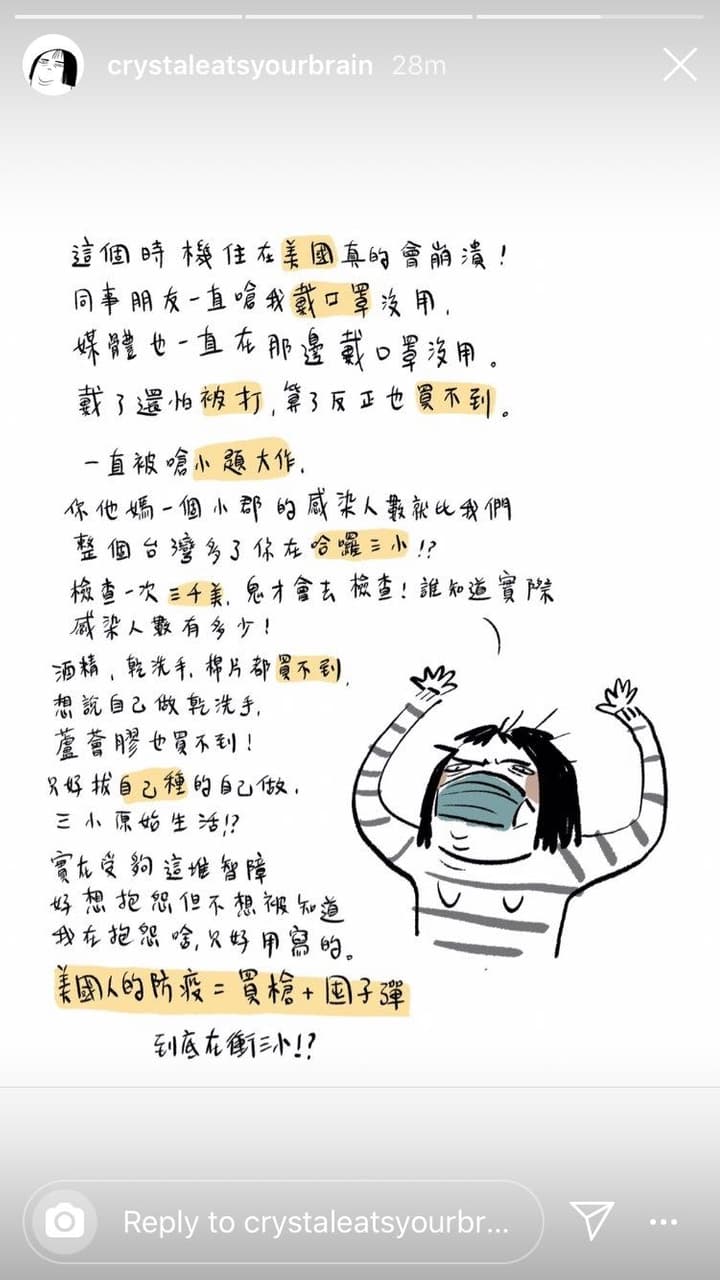 crystaleatsyourbrain 28m
這個時機住在美國真的會崩潰!
同事朋友一直嗆我戴口罩沒用,
媒體也一直在那邊戴口罩沒用。
戴了還怕被打,算了反正也買不到。
一直被嗆小題大作,
你他媽一個小郡的感染人數就比我們
整個台灣多了你在哈囉三小!?
檢查一次三千美,鬼才會去檢查!誰知道實際
感染人數有多少!
酒精,乾洗手,棉片都買不到,
想說自己做乾洗手,
蘆薈膠也買不到!
只好拔自己種的自己做,
三小原始生活!?
實在受夠這堆智障
好想抱怨但不想被知道
我在抱怨啥,只好用寫的。
美國人的防疫=買槍+囤子彈
到底在衝三小!?
Reply to crystaleatsyourbr...